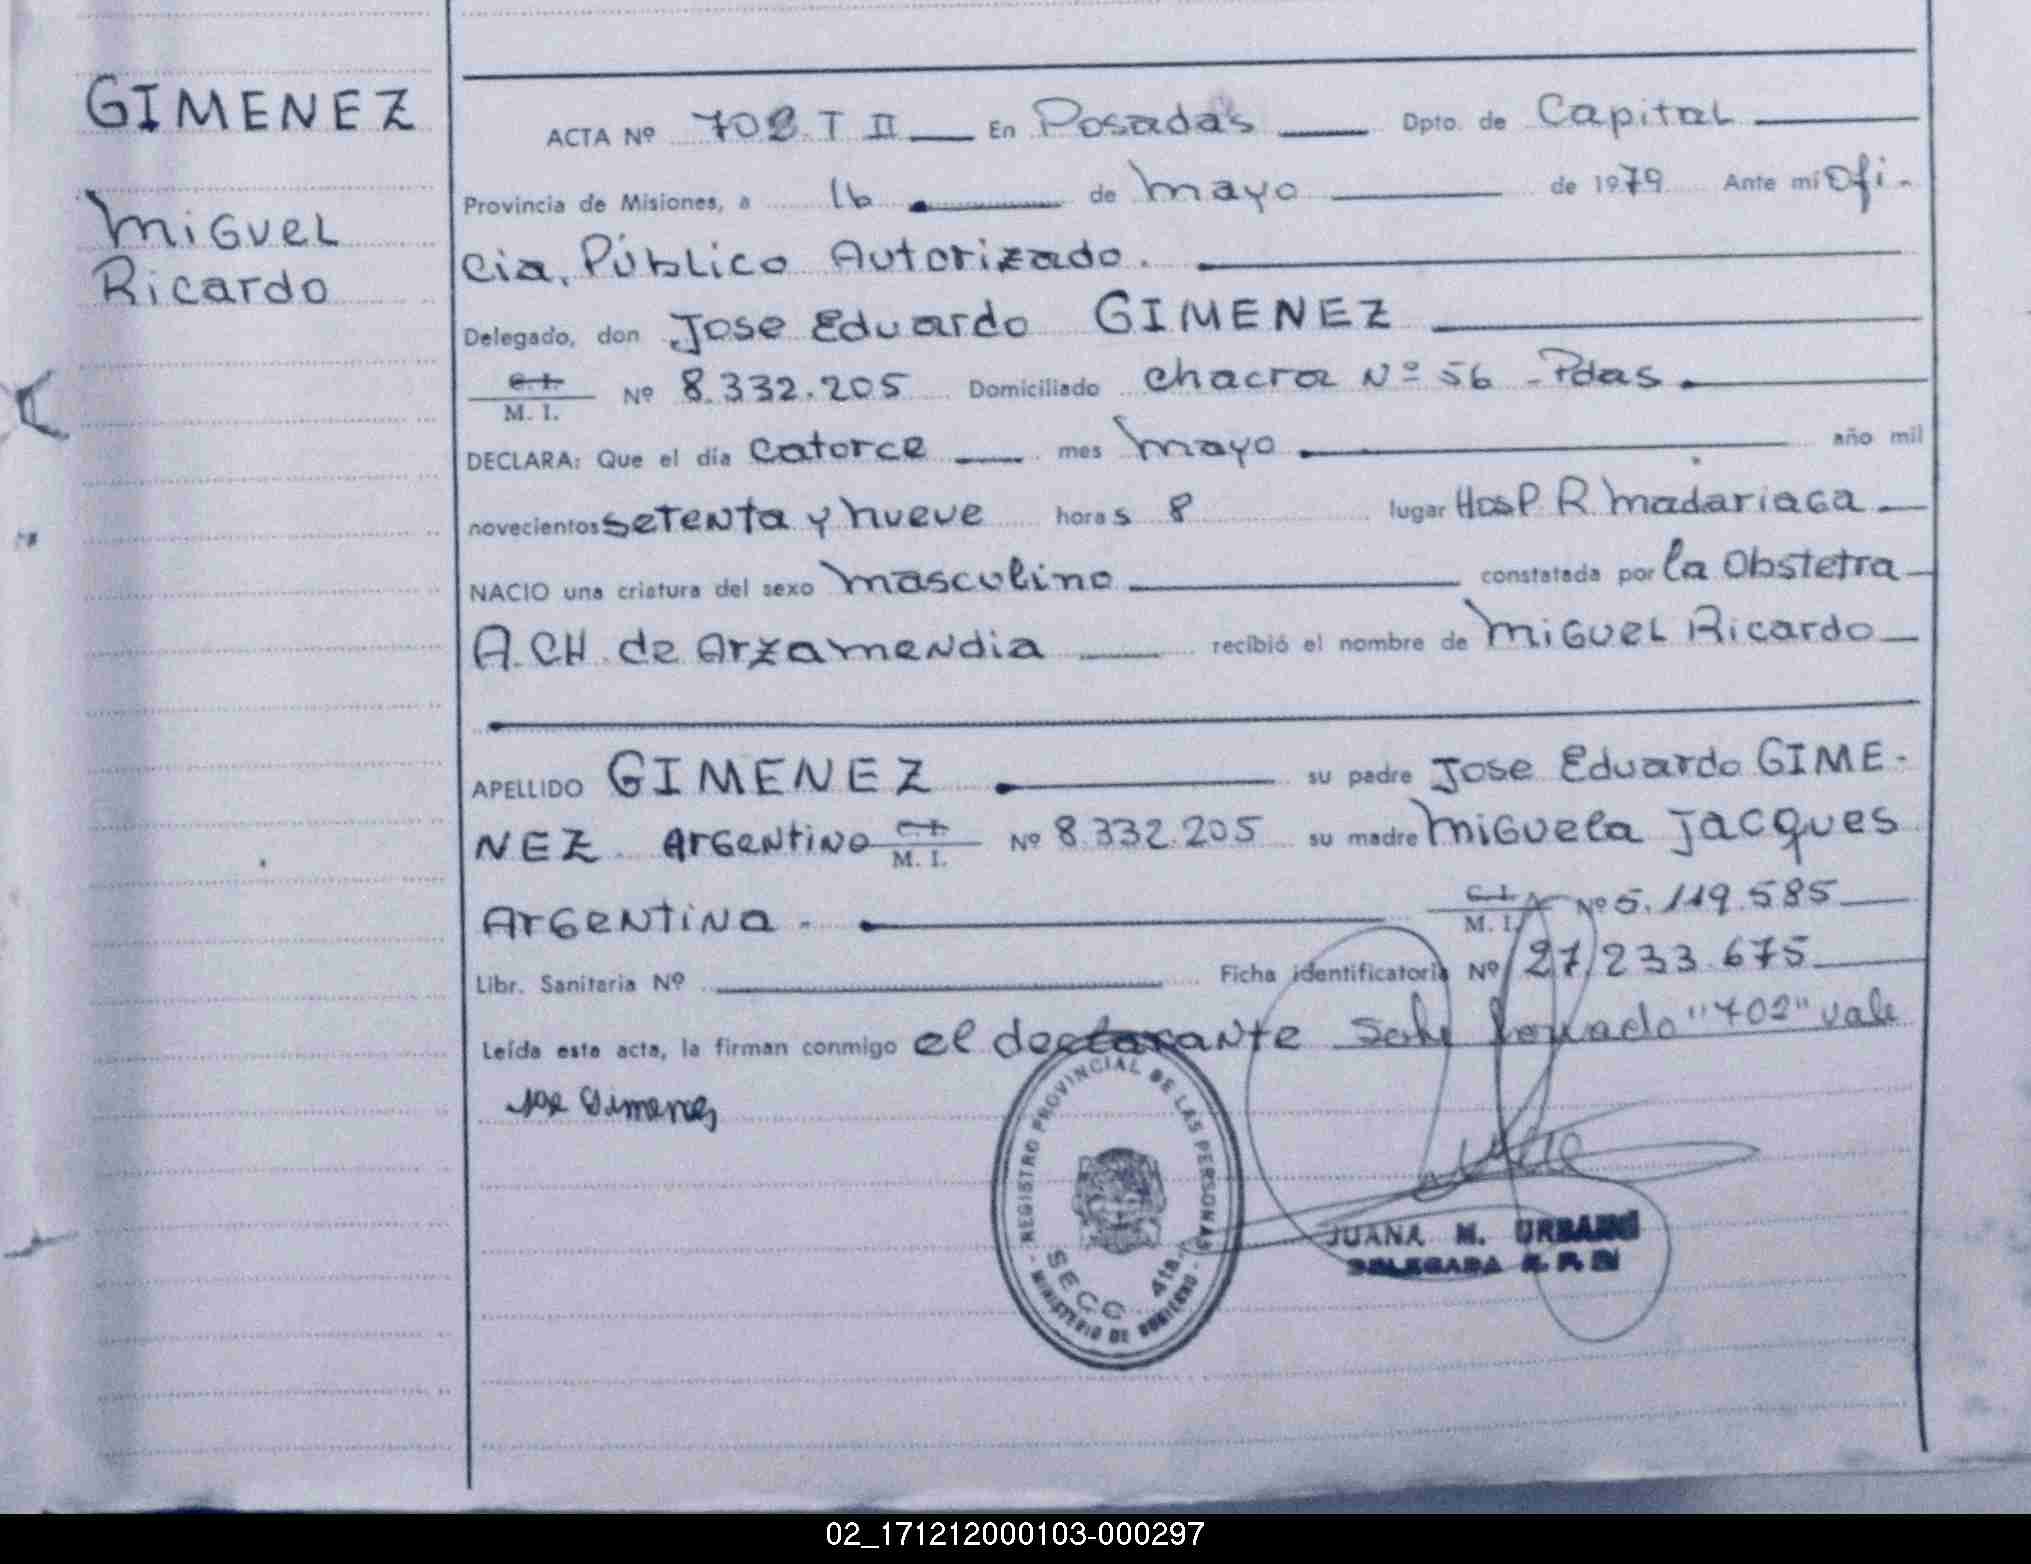 GIMENEZ
Miguel
Ricardo
ACTA Nº 702 T II En Posadas Dpto. de Capital
Provincia de Misiones, a 16 de mayo de 1979 Ante mi Ofi-
cia. Público Autorizado.
Delegado, don Jose Eduardo GIMENEZ
C.I. M. I. Nº 8.332.205 Domiciliado chacra Nº 56 - Pdas.
DECLARA: Que el día catorce mes mayo año mil
novecientos setenta y nueve horas 8 lugar Hosp R. Madariaga
NACIO una criatura del sexo masculino constatada por la Obstetra
A. CH. de Arzamendia recibió el nombre de Miguel Ricardo
APELLIDO GIMENEZ su padre Jose Eduardo GIME-
NEZ Argentino C.I. M. I. Nº 8.332.205 su madre Miguela Jacques
Argentina. C.I. M. I. Nº 5.119.585
Libr. Sanitaria Nº Ficha identificatoria Nº 27.233.675
Leída esta acta, la firman conmigo el declarante "702" vale
Jose Gimenez
REGISTRO PROVINCIAL DE LAS PERSONAS
SECC 4ta.
MINISTERIO DE GOBIERNO
JUANA M. URBANO
DELEGADA
02_171212000103-000297